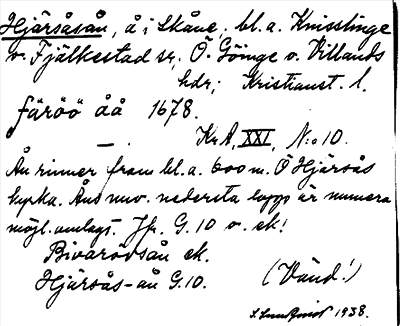 Hjärsåsån, å i Skåne, bl.a. Knisslinge
o. Fjälkestad sr, Ö. Göinge o. Villands
hdr; Kristianst. l.
färöö åå 1678.
KrA, XXI, N:o 10.
Ån rinner fram bl.a. 600 m. Ö Hjärsås
kyrka. Åns nuv. nedersta lopp är numera
möjl. omlagt. Jfr. G. 10 o. ek!
Bivarödsån ek.
Hjärsås-ån G.10.
(Vänd!)
1938.